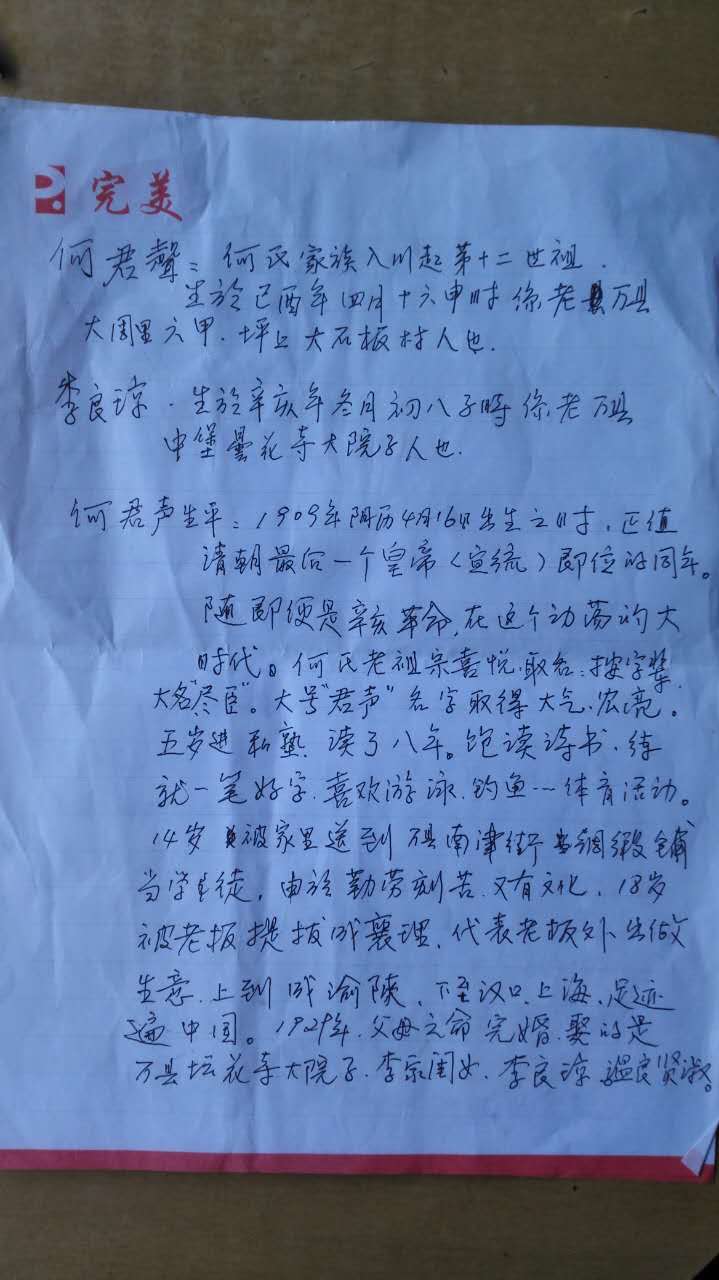 完美
何君聲：何氏家族入川起第十二世祖.
生於己酉年四月十六申时係老万县
大周里六甲.坪上大石板村人也.
李良琼.生於辛亥年冬月初八子時係老万县
中堡曇花寺大院子人也.
何君声生平：1909年阴历4月16日出生之时,正值
清朝最后一个皇帝（宣统）即位的同年。
随即便是辛亥革命,在这个动荡的大
时代。何氏老祖宗喜悦.取名:按字辈.
大名"尽臣"。大号"君声"名字取得大气.宏亮。
五岁进私塾.读了八年。饱读诗书.练
就一笔好字.喜欢游泳.钓鱼…体育活动。
14岁被家里送到万县南津街绸缎铺
当学徒,由於勤劳刻苦.又有文化.18岁
被老板提拔成襄理.代表老板外出做
生意.上到成渝陕.下至汉口.上海.足迹
遍中国。1929年.父母之命完婚.娶的是
万县坛花寺大院子.李家闺女.李良琼.温良贤淑。